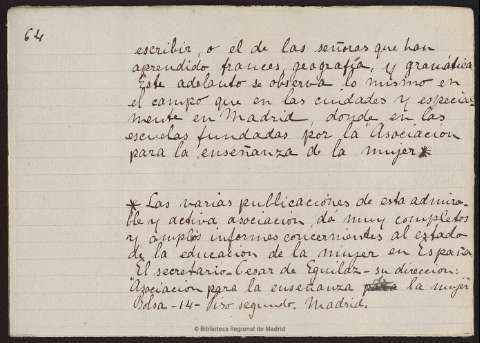 64
escribir, o el de las señoras que han
aprendido frances, geografía, y gramática
Este adelanto se observa lo mismo en
el campo que en las ciudades y especial-
mente en Madrid, donde en las
escuelas fundadas por la "Asociacion
para la enseñanza de la mujer*
* Las varias publicaciones de esta admira-
ble y activa asociacion, dá muy completos
y amplios informes concernientes al estado
de la educacion de la mujer en España
El secretario-Cesar de Eguilaz - su direccion:
"Asociacion para la enseñanza la mujer"
Bolsa -14- Piso segundo. Madrid.
© Biblioteca Regional de Madrid